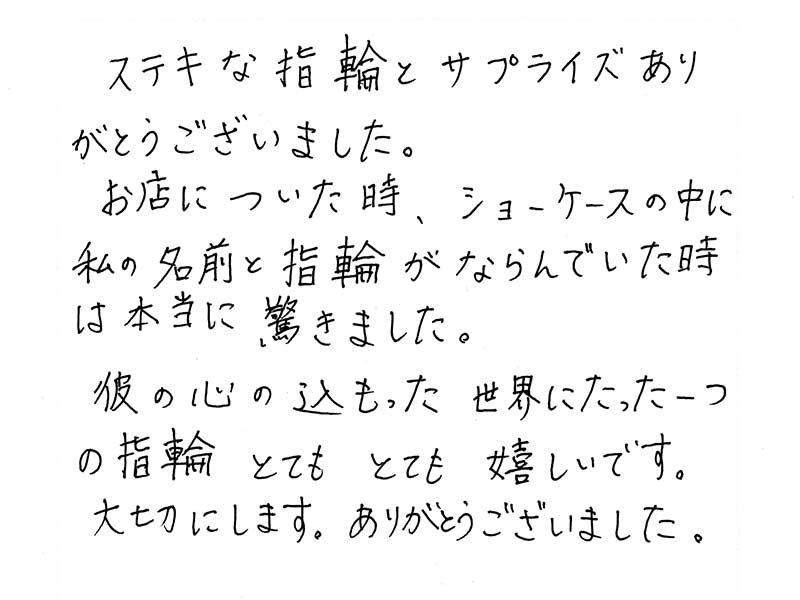 ステキな指輪とサプライズあり
がとうございました。
お店についた時、ショーケースの中に
私の名前と指輪がならんでいた時
は本当に驚きました。
彼の心の込もった世界にたった一つ
の指輪とてもとても嬉しいです。
大切にします。ありがとうございました。